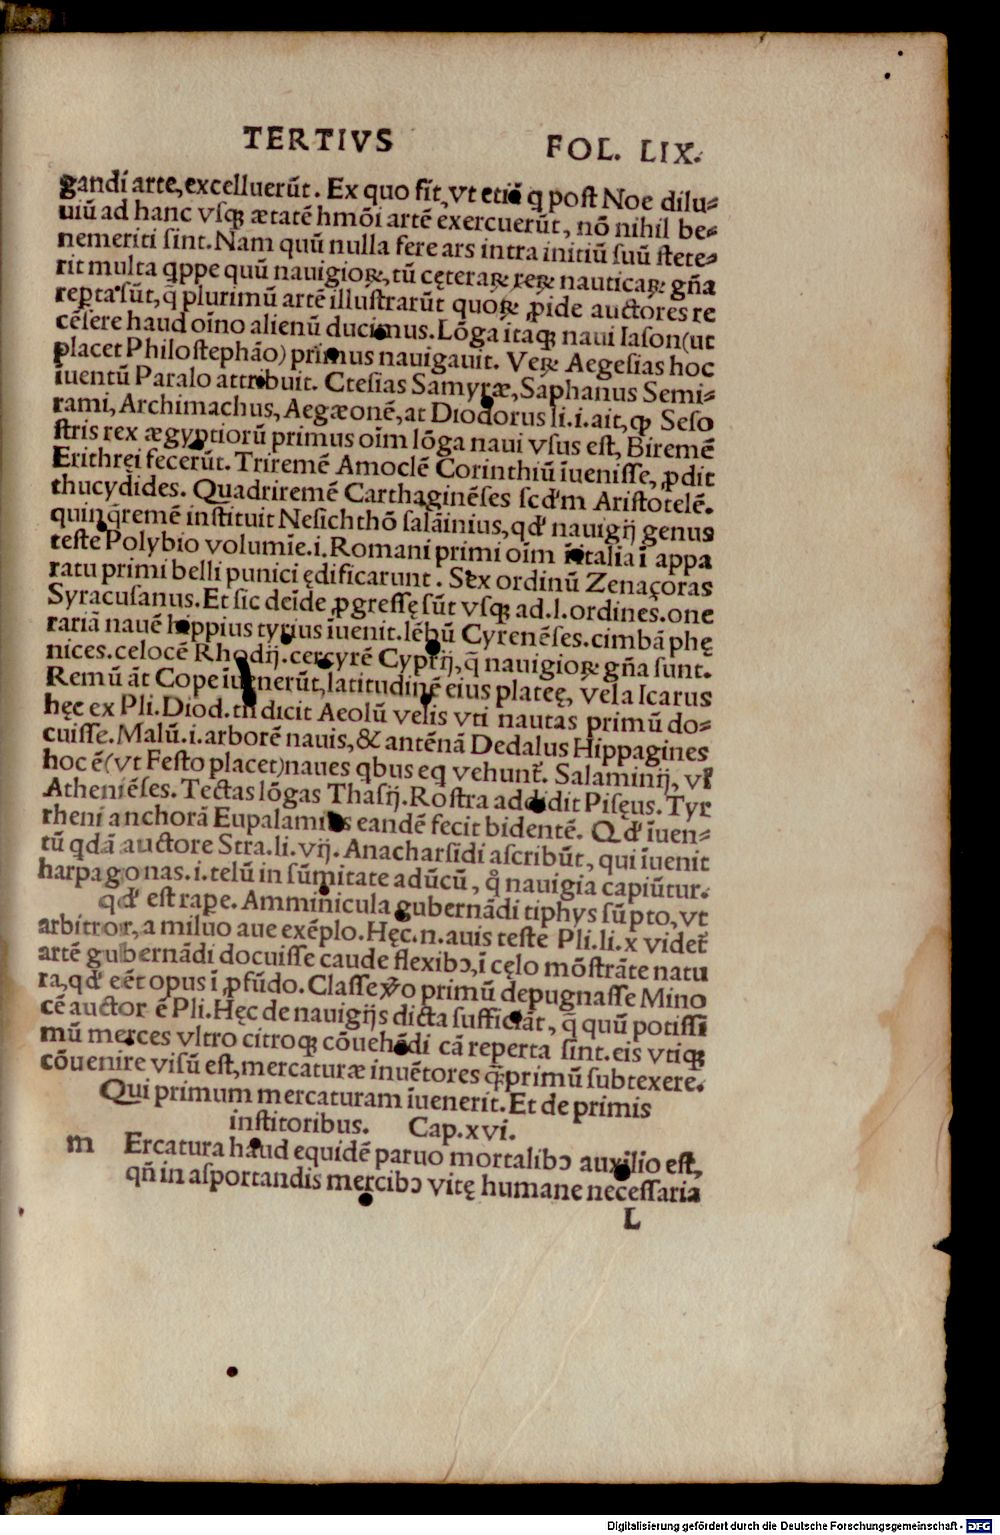 TERTIVS FOL. LIX.
gandi arte, excelluerūt. Ex quo fit, vt etiā q post Noe dilu-
uiū ad hanc vsqꝫ ætatē hmōi artē exercuerūt, nō nihil be-
nemeriti sint. Nam quū nulla fere ars intra initiū suū stete-
rit multa qppe quū nauigioꝝ, tū cęteraꝝ reꝝ nauticaꝝ gn̄a
reꝑta sūt, q̄ plurimū artē illustrarūt quoꝝ ꝓide auctores re
cēsere haud oīno alienū ducimus. Lōga itaqꝫ naui Iason (ut
placet Philostephāo) primus nauigauit. Veꝝ Aegesias hoc
īuentū Paralo attribuit. Ctesias Samyræ, Saphanus Semi-
rami, Archimachus, Aegæonē, at Diodorus li. i. ait, ꝙ Seso
stris rex ægyptiorū primus oīm lōga naui vsus est, Biremē
Erithręi fecerūt. Triremē Amoclē Corinthiū īuenisse, ꝓdit
thucydides. Quadriremē Carthaginēses scd'm Aristotelē.
quinq̄remē instituit Nesichthō salāinius, qd' nauigij genus
teste Polybio volumīe. i. Romani primi oīm ī italia ī appa
ratu primi belli punici ędificarunt. Sex ordinū Zenaçoras
Syracusanus. Et sic deīde ꝓgressę sūt vsqꝫ ad. l. ordines. one
rariā nauē hippius tyrius īuenit. lēbū Cyrenēses. cimbā phę
nices. celocē Rhodij. cercyrē Cyprij, q̄ nauigioꝝ gn̄a sunt.
Remū āt Cope īuenerūt, latitudinē eius plateę, vela Icarus
hęc ex Pli. Diod. tn̄ dicit Aeolū velis vti nautas primū do-
cuisse. Malū. i. arborē nauis, & antēnā Dedalus Hippagines
hoc ē (vt Festo placet) naues qbus eq vehunt̄. Salaminij, vł
Atheniēses. Tectas lōgas Thasij. Rostra addidit Pisęus. Tyr
rheni anchorā Eupalamius eandē fecit bidentē. Qd' īuen-
tū qdā auctore Stra. li. vij. Anacharsidi ascribūt, qui īuenit
harpagonas. i. telū in sūmitate adūcū, q̊ nauigia capiūtur.
qd' est raꝑe. Amminicula gubernādi tiphys sūpto, vt
arbitror, a miluo aue exēplo. Hęc. n. auis teste Pli. li. x videt̄
artē gubernādi docuisse caude flexibꝰ, ī cęlo mōstrāte natu
ra, qd' eēt opus ī ꝓfūdo. Classe v̄o primū depugnasse Mino
cē auctor ē Pli. Hęc de nauigijs dicta sufficiāt, q̄ quū potissī
mū merces vltro citroqꝫ cōuehēdi cā reperta sint. eis vtiqꝫ
cōuenire visū est, mercaturæ inuētores q̄primū subtexere.
Qui primum mercaturam īuenerit. Et de primis
institoribus. Cap. xvi.
m Ercatura haud equidē paruo mortalibꝰ auxilio est,
qn̄ in asportandis mercibꝰ vitę humane necessaria
L
Digitalisierung gefördert durch die Deutsche Forschungsgemeinschaft - DFG